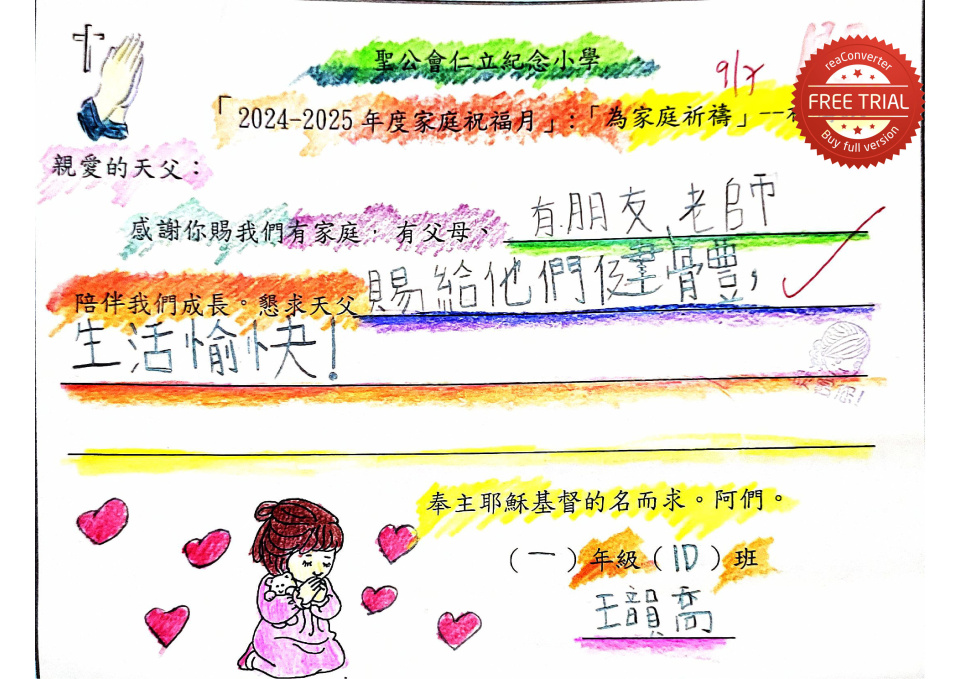 聖公會仁立紀念小學
9/7
「2024-2025 年度家庭祝福月」:「為家庭祈禱」--
reaConverter
FREE TRIAL
Buy full version
親愛的天父：
感謝你賜我們有家庭，有父母、有朋友、老師
陪伴我們成長。懇求天父賜給他們健康體豐,
生活愉快!
奉主耶穌基督的名而求。阿們。
(一)年級(1D)班
王韻喬